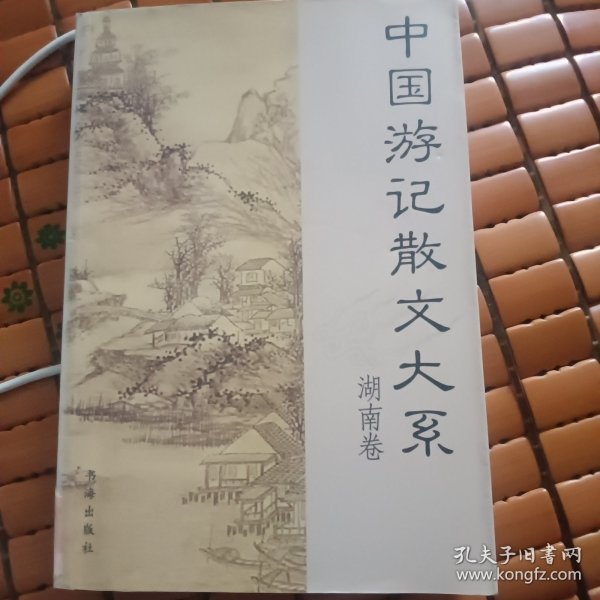 中国游记散文大系
湖南卷
书海出版社
孔夫子旧书网
www.kongfz.com